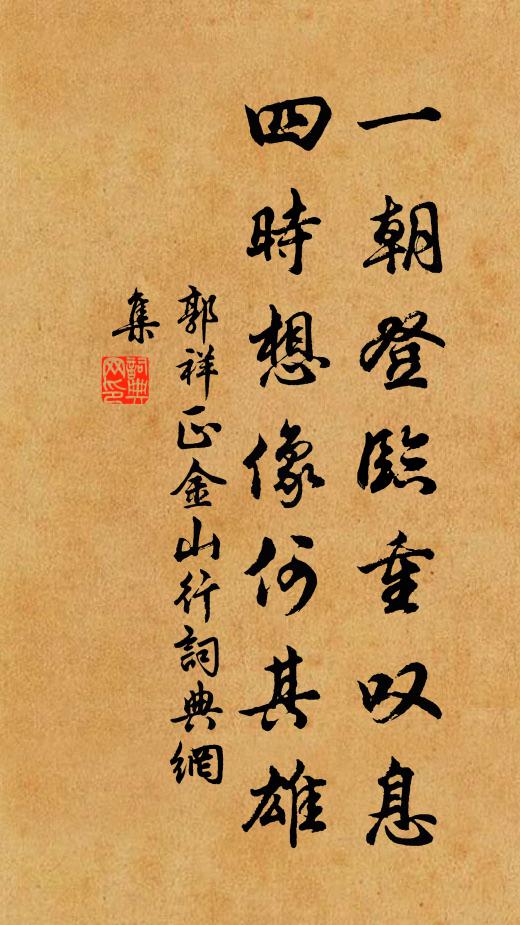 一朝登臨重叹息
四時想像何其雄
郭祥正金山行詞典網
集
詞典
网印